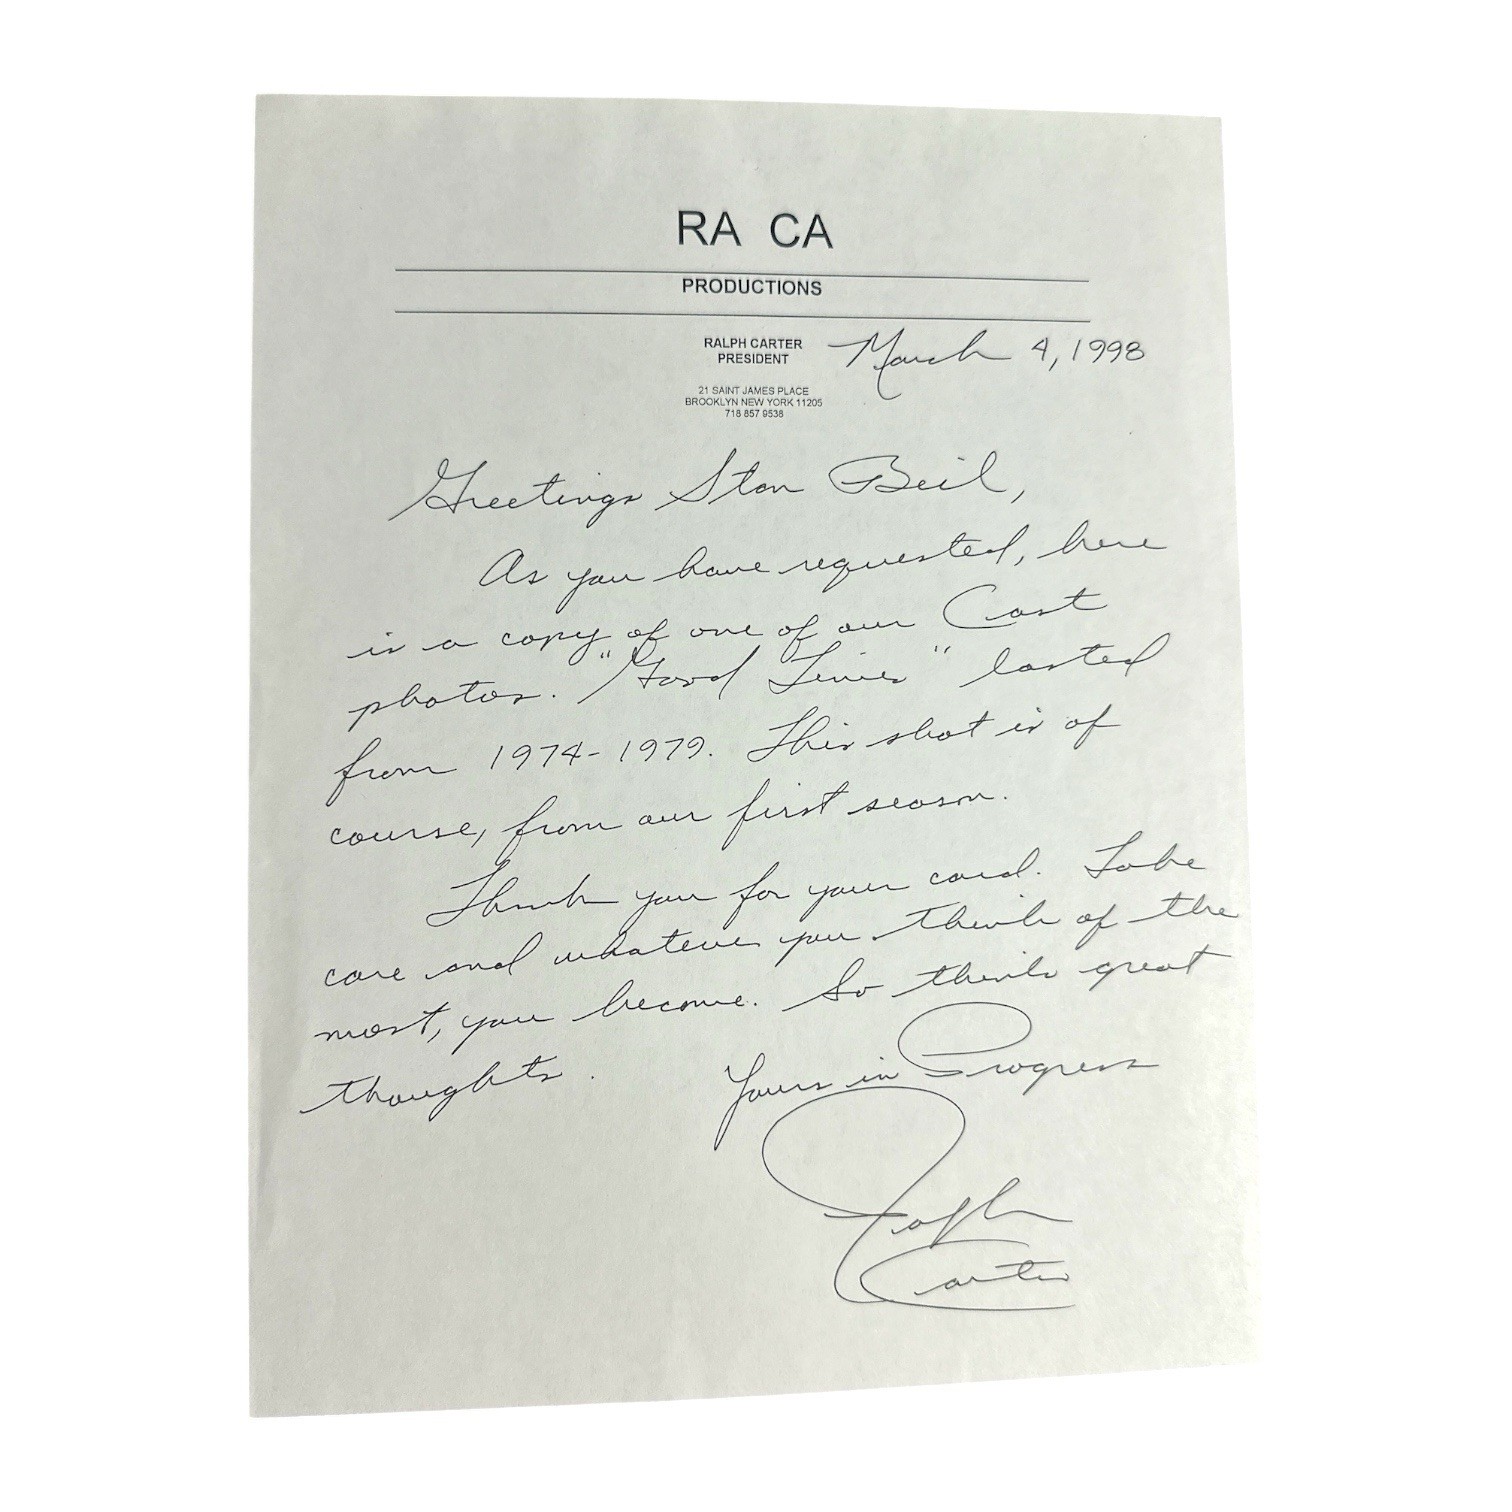 RA CA
PRODUCTIONS
RALPH CARTER
PRESIDENT
March 4, 1998
21 SAINT JAMES PLACE
BROOKLYN NEW YORK 11205
718 857 9538
Greetings Stan Beil,
As you have requested, here
is a copy of one of our Cast
photos. "Good Times" lasted
from 1974-1979. This shot is of
course, from our first season.
Thank you for your card. Take
care and whatever you think of the
most, you become. So think great
thoughts.
Yours in Progress
Ralph
Carter